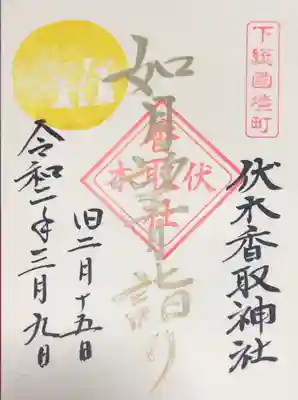 下総國境町
伏木香取神社
如月満月詣り
伏木香取社
旧二月十五日
令和二年三月九日